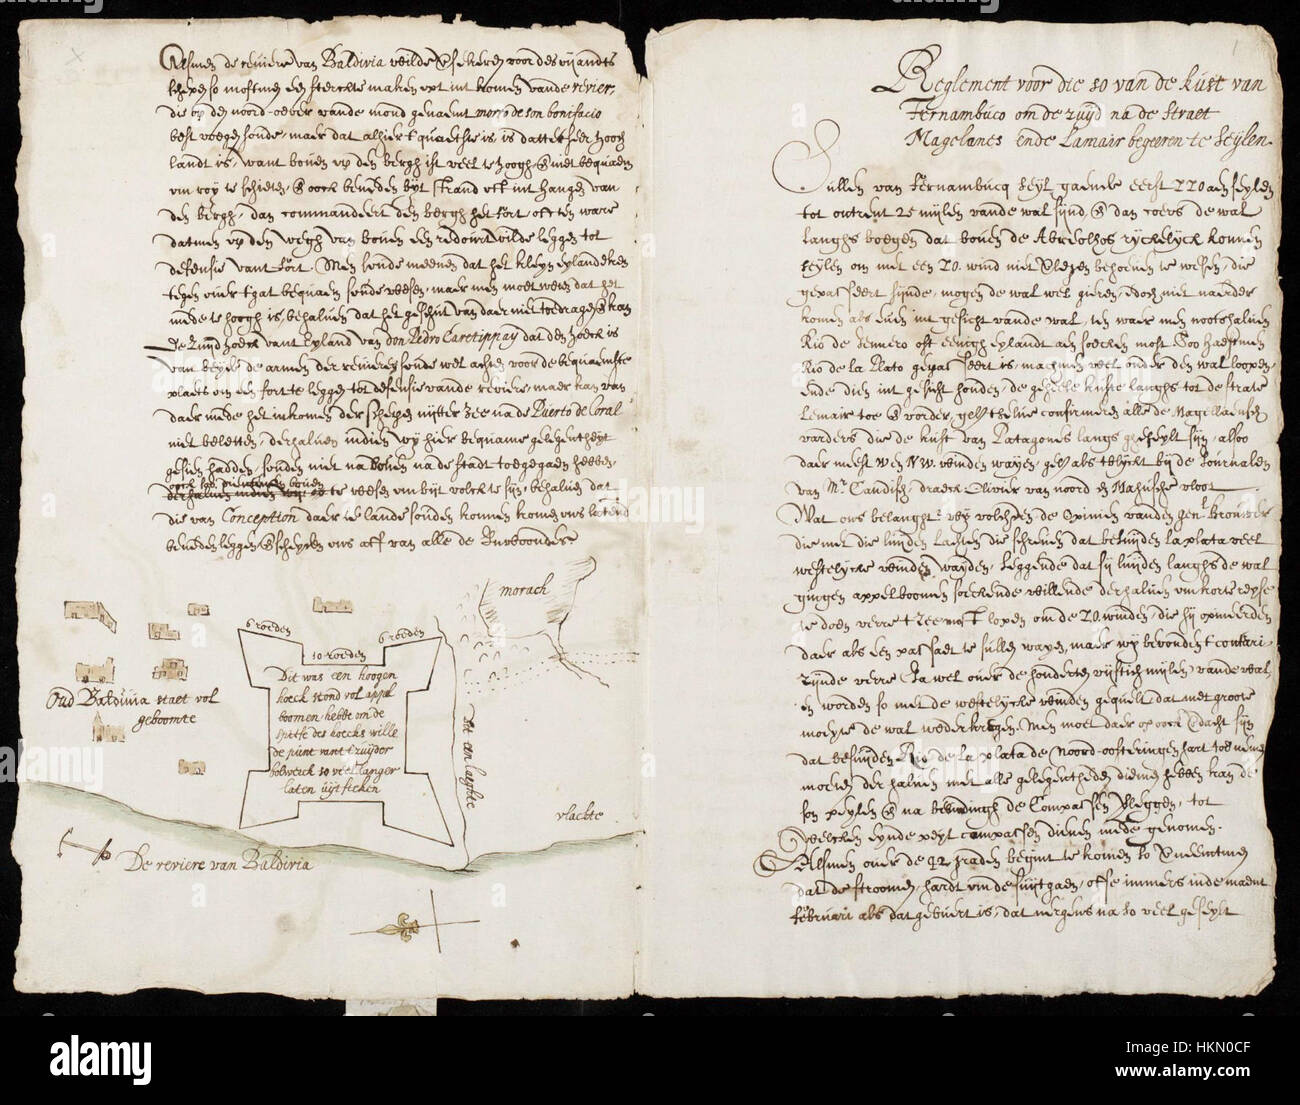 Alsmen de reviere van Baldivia wilde versekeren voor des vyandts
schepen so mosten een sterckte maken opt int komen vande revier,
die op den noord-oever vande mond genaemt morro de son bonifacio
best wesen soude, maer dat alhier t quaetste is, is dattet seer hooch
landt is, want boven op den bergh ist veel te hoogh, & niet bequaem
om roy te schieten, & oock beneden byt strand oft int hangen van
den bergh, dan commandeert den bergh het fort, often ware
datmen op den wegh van boven een redouyt wilde leggen tot
defensie vant fort. Men soude meenen dat het kleyn eylandeken
tegen over t gat bequaem soude wesen, maer men moet weten dat het
mede te hoogh is, behalven dat het geschut van daer niet toedragen kan
De Zuyd hoeck vant Eyland van don Pedro Caretippay dat den hoeck is
van beyde de armen der reviere soude wel achten voor de bequaemste
plaets om een fort te leggen tot defensie vande reviere, maer kan van
daer mede het inkomen der schepen uyter zee na de Puerto de Coral
niet beletten, derhalven indien wy hier bequame gelegentheyt
gesien hadden, souden niet na boven na de stadt toegegaen hebben
te wesen om byt volck te syn, behalven dat
die van Conception daer te lande souden konnen komen ons latend
beneden leggen & scheyden ons aff van alle de Inwoonders
morach
6 roeden
6 roeden
10 roeden
Dit was een hoogen
hoeck stond vol appel
boomen hebbt om de
spitse des hoecks wille
de punt vant zuyder
bolwerck so veel langer
laten uytsteken
Oud Baldivia staet vol
geboomte
Dit een laeghte
vlachte
De reviere van Baldivia
1
Reglement voor die so van de kust van
Fernambuco om de zuyd na de Straet
Magelanes ende Lamair begeeren te seylen.
Sullen van Fernambucq seyl gaende eerst ZZO aen seylen
tot ontrent 25 mylen vande wal synd, & dan coers de wal
langhs boegen dat boven de Abreolhos ryckelyck konnen
seylen om met een ZO. wind niet verlegen behoeven te wesen, die
gepasseert synde, mogen de wal wel gieren, edoch niet naerder
komen als even int gesicht vande wal, ten waer men nootshalven
Rio de Jenero oft eenigh eylandt aen soecken most. Soo haest men
Rio de la Plato gepasseert is, machmen veel onder den wal loopen,
ende dien int gesicht houden, de geheele kuste langhs tot de strate
Lemair toe & vorder, gelyck selve confirmeren alle de Magellaensche
vaerders die de kust van Patagones langs geseylt syn, alsoo
daer meest W en NW. winden wayen, gelyck als blyckt by de Journalen
van Mr. Candisch, draeck Olivier van noord en Mahusche vloot.
Wat ons belanght wy volchden de Opinien vanden gen. Brouwer
die met die luyden lagen die schreven dat besuyden la plata veel
westelycke winden wayden, seggende dat sy luyden langhs de wal
gingen appelboomen soeckende willende derhalven om korte reyse
te doen verre t zeewert loopen om de ZO. winden, die sy opineerden
daer als een passaet te sullen wayen, maer wy bevonden t contrari-
zynde verre Ja wel over de honderten vyftich mylen vande wal,
en worden so met de westelycke winden gequelt dat met groote
moeyte de wal weder kregen. Men moet daer op oock verdacht syn
dat besuyden Rio de la plata de Noord-oosteringen hart toe neme
moeten derhalven met alle gelegentheden diemen hebben kan de
son peylen & na bevindingh de Compassen verleggen, tot
welcken eynde peyl compassen dienen mede genomen.
Alsmen over de 42 graden begint te komen so verneemtmen
dat de stroomen, hardt om de suyt gaen, ofte immers inde maent
februari als dat gebeurt is, dat nergens na so veel geseylt
alamy
alamy
Image ID: HKN0CF
www.alamy.com